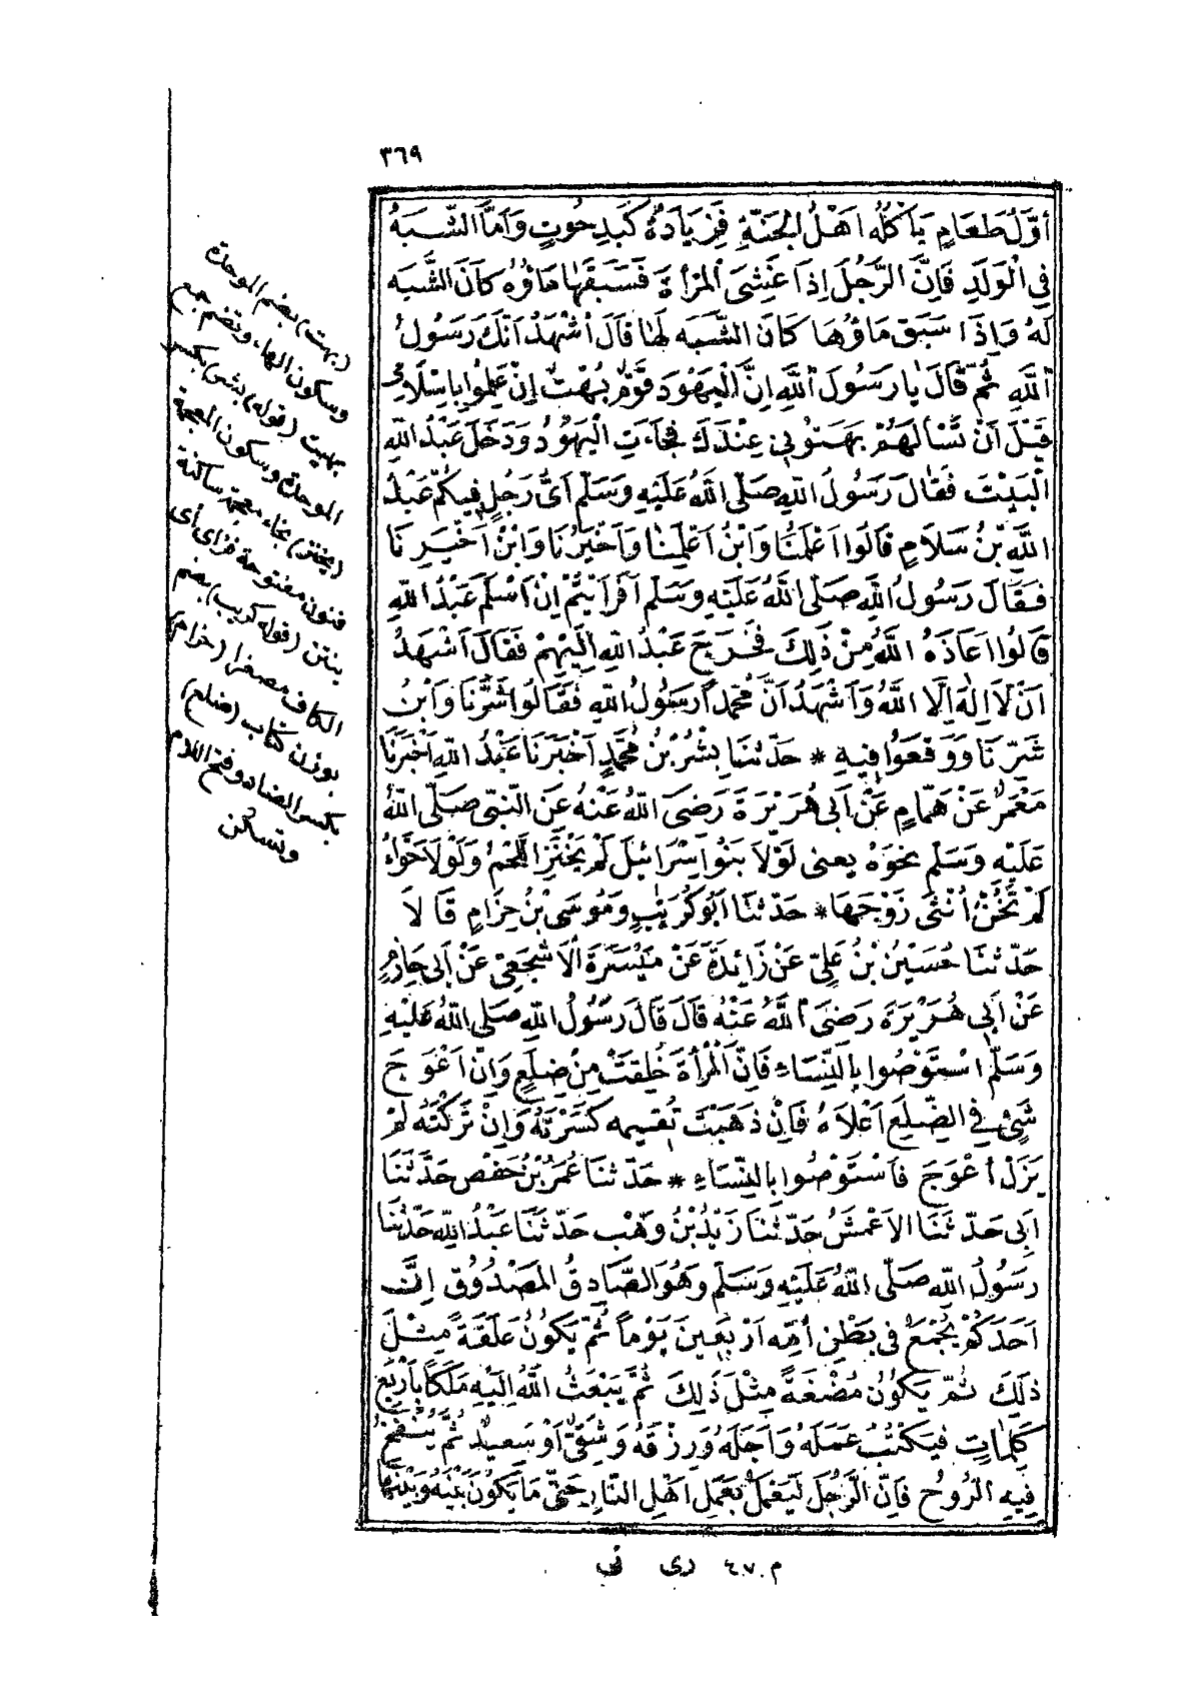 ٣٦٩
أَوَّلُ طَعَامٍ يَأْكُلُهُ اَهْلُ الْجَنَّةِ فَزِيَادَةُ كَبَدِ حُوتٍ وَاَمَّا الشَّبَهُ
فِي الْوَلَدِ فَاِنَّ الرَّجُلَ اِذَا غَشِىَ اْلمَرْأَةَ فَسَبَقَهَا مَاؤُهُ كَانَ الشَّبَهُ
لَهُ وَاِذَا سَبَقَ مَاؤُهَا كَانَ الشَّبَهُ لَهَا قَالَ اَشْهَدُ اَنَّكَ رَسُولُ
اللهِ ثُمَّ قَالَ يَا رَسُولَ اللهِ اِنَّ اْليَهُودَ قَوْمٌ بُهْتٌ اِنْ عَلِمُوا بِاِسْلَامِى
قَبْلَ اَنْ تَسْاَلَهُمْ بَهَتُونِى عِنْدَكَ فَجَاءَتِ اْليَهُودُ وَدَخَلَ عَبْدُ اللهِ
الْبَيْتَ فَقَالَ رَسُولُ اللهِ صَلَّى اللهُ عَلَيْهِ وَسَلَّمَ اَىُّ رَجُلٍ فِيكُمْ عَبْدُ
اللهِ بْنُ سَلَامٍ قَالُوا اَعْلَمُنَا وَابْنُ اَعْلَمِنَا وَاَخْيَرُنَا وَابْنُ اَخْيَرِنَا
فَقَالَ رَسُولُ اللهِ صَلَّى اللهُ عَلَيْهِ وَسَلَّمَ اَفَرَاَيْتُمْ اِنْ اَسْلَمَ عَبْدُ اللهِ
قَالُوا اَعَاذَهُ اللهُ مِنْ ذَلِكَ فَخَرَجَ عَبْدُ اللهِ اِلَيْهِمْ فَقَالَ اَشْهَدُ
اَنْ لَا اِلَهَ اِلَّا اللهُ وَاَشْهَدُ اَنَّ مُحَمَّداً رَسُولُ اللهِ فَقَالُوا شَرُّنَا وَابْنُ
شَرِّنَا وَوَقَعُوا فِيهِ * حَدَّثَنَا بِشْرُ بْنُ مُحَمَّدٍ اَخْبَرَنَا عَبْدُ اللهِ اَخْبَرَنَا
مَعْمَرٌ عَنْ هَمَّامٍ عَنْ اَبِى هُرَيْرَةَ رَضِىَ اللهُ عَنْهُ عَنِ النَّبِىِّ صَلَّى اللهُ
عَلَيْهِ وَسَلَّمَ نَحْوَهُ يعنى لَوْلاَ بَنُو اِسْرَائِيلَ لَمْ يَخْنَزِ اللَّحْمُ وَلَوْلَا حَوَّاءُ
لَمْ تَخُنْ اُنْثَى زَوْجَهَا * حَدَّثَنَا اَبُو كُرَيْبٍ وَمُوسَى بْنُ حِزَامٍ قَالَا
حَدَّثَنَا حُسَيْنُ بْنُ عَلِىٍّ عَنْ زَائِدَةَ عَنْ مَيْسَرَةَ الْاَشْجَعِىِّ عَنْ اَبِى حَازِمٍ
عَنْ اَبِى هُرَيْرَةَ رَضِىَ اللهُ عَنْهُ قَالَ قَالَ رَسُولُ اللهِ صَلَّى اللهُ عَلَيْهِ
وَسَلَّمَ اسْتَوْصُوا بِالنِّسَاءِ فَاِنَّ اْلمَرْأَةَ خُلِقَتْ مِنْ ضِلَعٍ وَاِنَّ اَعْوَجَ
شَىْءٍ فِى الضِّلَعِ اَعْلَاهُ فَاِنْ ذَهَبْتَ تُقيمه كَسَرْتَهُ وَاِنْ تَرَكْتَهُ لَمْ
يَزَلْ اَعْوَجَ فَاسْتَوْصُوا بِالنِّسَاءِ * حَدَّثَنَا عُمَرُ بْنُ حَفْصٍ حَدَّثَنَا
اَبِى حَدَّثَنَا الاَعْمَشُ حَدَّثَنَا زَيْدُ بْنُ وَهْبٍ حَدَّثَنَا عَبْدُ اللهِ حَدَّثَنَا
رَسُولُ اللهِ صَلَّى اللهُ عَلَيْهِ وَسَلَّمَ وَهُوَ الصَّادِقُ الْمَصْدُوقُ اِنَّ
اَحَدَكُمْ يُجْمَعُ فى بَطْنِ اُمِّهِ اَرْبَعِينَ يَوْماً ثُمَّ يَكُونُ عَلَقَةً مِثْلَ
ذَلِكَ ثُمَّ يَكُونُ مُضْغَةً مِثْلَ ذَلِكَ ثُمَّ يَبْعَثُ اللهُ اِلَيْهِ مَلَكًا بِاَرْبَعِ
كَلِمَاتٍ فَيَكْتُبُ عَمَلَهُ وَاَجَلَهُ وَرِزْقَهُ وَشَقِىٌّ اَوْ سَعِيدٌ ثُمَّ يُنْفَخُ
فِيهِ الرُّوحُ فَاِنَّ الرَّجُلَ لَيَعْمَلُ بِعَمَلِ اَهْلِ النَّارِ حَتَّى مَا يَكُونُ بَيْنَهُ وَبَيْنَهَا
(بهت) بضم الموحدة
وسكون الهاء وتضم جمع
بهيت (قوله) بشر) بكسر
الموحدة وسكون المعجمة
(يخنز) بخاء معجمة ساكنة
فنون مفتوحة فزاى أى
ينتن (قوله كريب) بضم
الكاف مصغرا (حزام)
بوزن كتاب (ضلع)
بكسر الضاد وفتح اللام
وتسكن
م.٤٧ رى نى